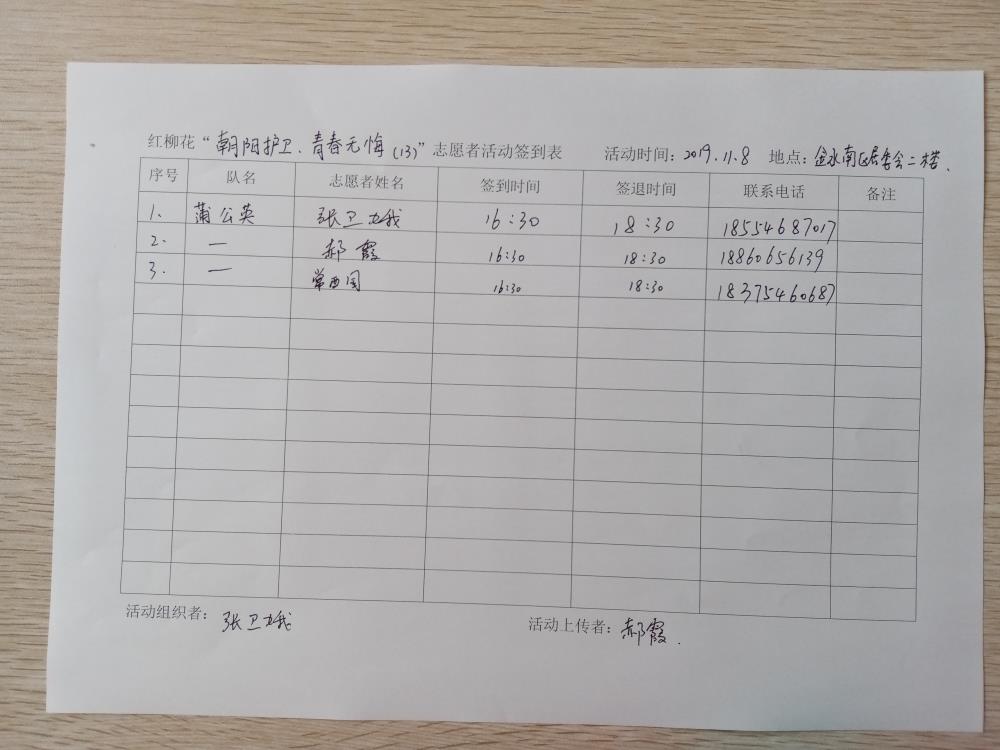 红柳花“朝阳护卫.青春无悔(13)”志愿者活动签到表 活动时间：2019.11.8 地点：金水南区居委会二楼.
序号 队名 志愿者姓名 签到时间 签退时间 联系电话 备注
1、 蒲公英 张卫娥 16:30 18:30 18554687017
2. 一 郝霞 16:30 18:30 18860656139
3. 一 常西国 16:30 18:30 18375460687
活动组织者：张卫娥 活动上传者：郝霞.